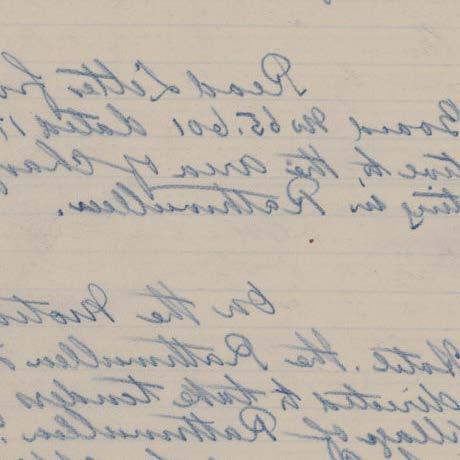 Read Letter fro
Board No 65.601 dated 1
tive to the area of Char
ting in Rathmullen.
On the motio
the Rathmullen
directed to take tenders
illage of Rathmullen